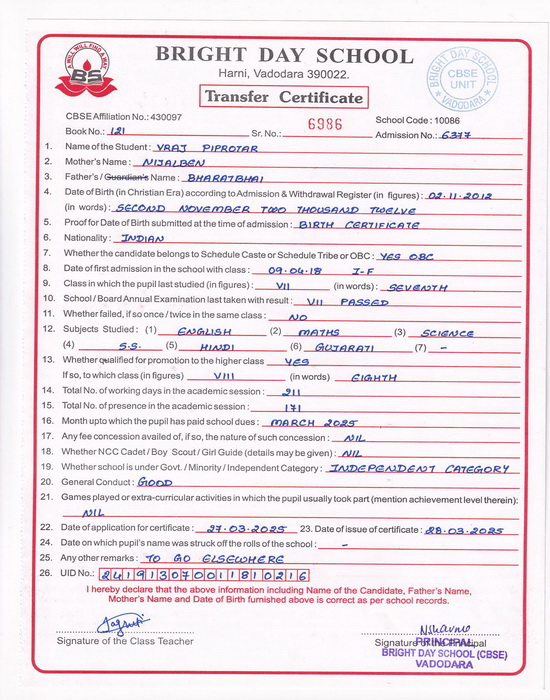 WILL WILL FIND A WAY
BS
BRIGHT DAY SCHOOL
Harni, Vadodara 390022.
Transfer Certificate
BRIGHT DAY SCHOOL
CBSE
UNIT
VADODARA
CBSE Affiliation No.: 430097 School Code : 10086
Book No.: 121 Sr. No.: 6986 Admission No.: 6377
1. Name of the Student : VRAJ PIPROTAR
2. Mother's Name : NIJALBEN
3. Father's / Guardian's Name : BHARATBHAI
4. Date of Birth (in Christian Era) according to Admission & Withdrawal Register (in figures) : 02.11.2012
(in words) : SECOND NOVEMBER TWO THOUSAND TWELVE
5. Proof for Date of Birth submitted at the time of admission : BIRTH CERTIFICATE
6. Nationality : INDIAN
7. Whether the candidate belongs to Schedule Caste or Schedule Tribe or OBC : YES OBC
8. Date of first admission in the school with class : 09.04.18 I-F
9. Class in which the pupil last studied (in figures) : VII (in words) : SEVENTH
10. School / Board Annual Examination last taken with result : VII PASSED
11. Whether failed, if so once / twice in the same class : NO
12. Subjects Studied : (1) ENGLISH (2) MATHS (3) SCIENCE
(4) S.S. (5) HINDI (6) GUJARATI (7) -
13. Whether qualified for promotion to the higher class YES
If so, to which class (in figures) VIII (in words) EIGHTH
14. Total No. of working days in the academic session : 211
15. Total No. of presence in the academic session : 171
16. Month upto which the pupil has paid school dues : MARCH 2025
17. Any fee concession availed of, if so, the nature of such concession : NIL
18. Whether NCC Cadet / Boy Scout / Girl Guide (details may be given) : NIL
19. Whether school is under Govt. / Minority / Independent Category : INDEPENDENT CATEGORY
20. General Conduct : GOOD
21. Games played or extra-curricular activities in which the pupil usually took part (mention achievement level therein):
NIL
22. Date of application for certificate : 27.03.2025 23. Date of issue of certificate : 28.03.2025
24. Date on which pupil's name was struck off the rolls of the school : -
25. Any other remarks : TO GO ELSEWHERE
26. UID No.: 241913070011810216
I hereby declare that the above information including Name of the Candidate, Father's Name,
Mother's Name and Date of Birth furnished above is correct as per school records.
Signature of the Class Teacher
Signature of the Principal
PRINCIPAL
BRIGHT DAY SCHOOL (CBSE)
VADODARA